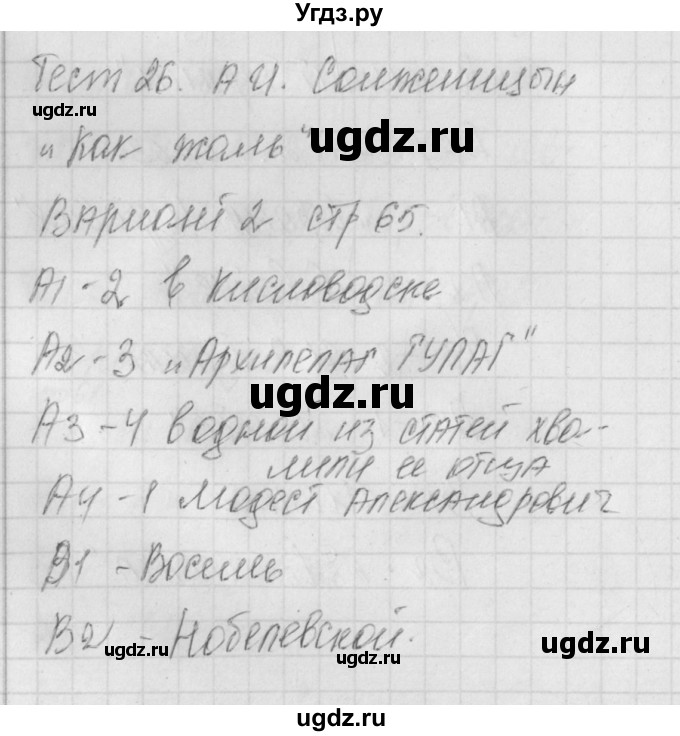 Угдз.ру
Тест 26. А И. Солженицын
ugdz.ru
"Как жаль"
ugdz.ru
Вариант 2 стр 65.
А1-2 в Кисловодске
А2-3 "Архипелаг ГУЛАГ"
ugdz.ru
ugdz.ru
А3-4 в одной из статей хва-
лили ее отца
А4-1 Модест Александрович
В1 - Восемь
В2 - Нобелевской.
ugdz.ru
ugdz.ru
ugdz.ru
ugdz.ru